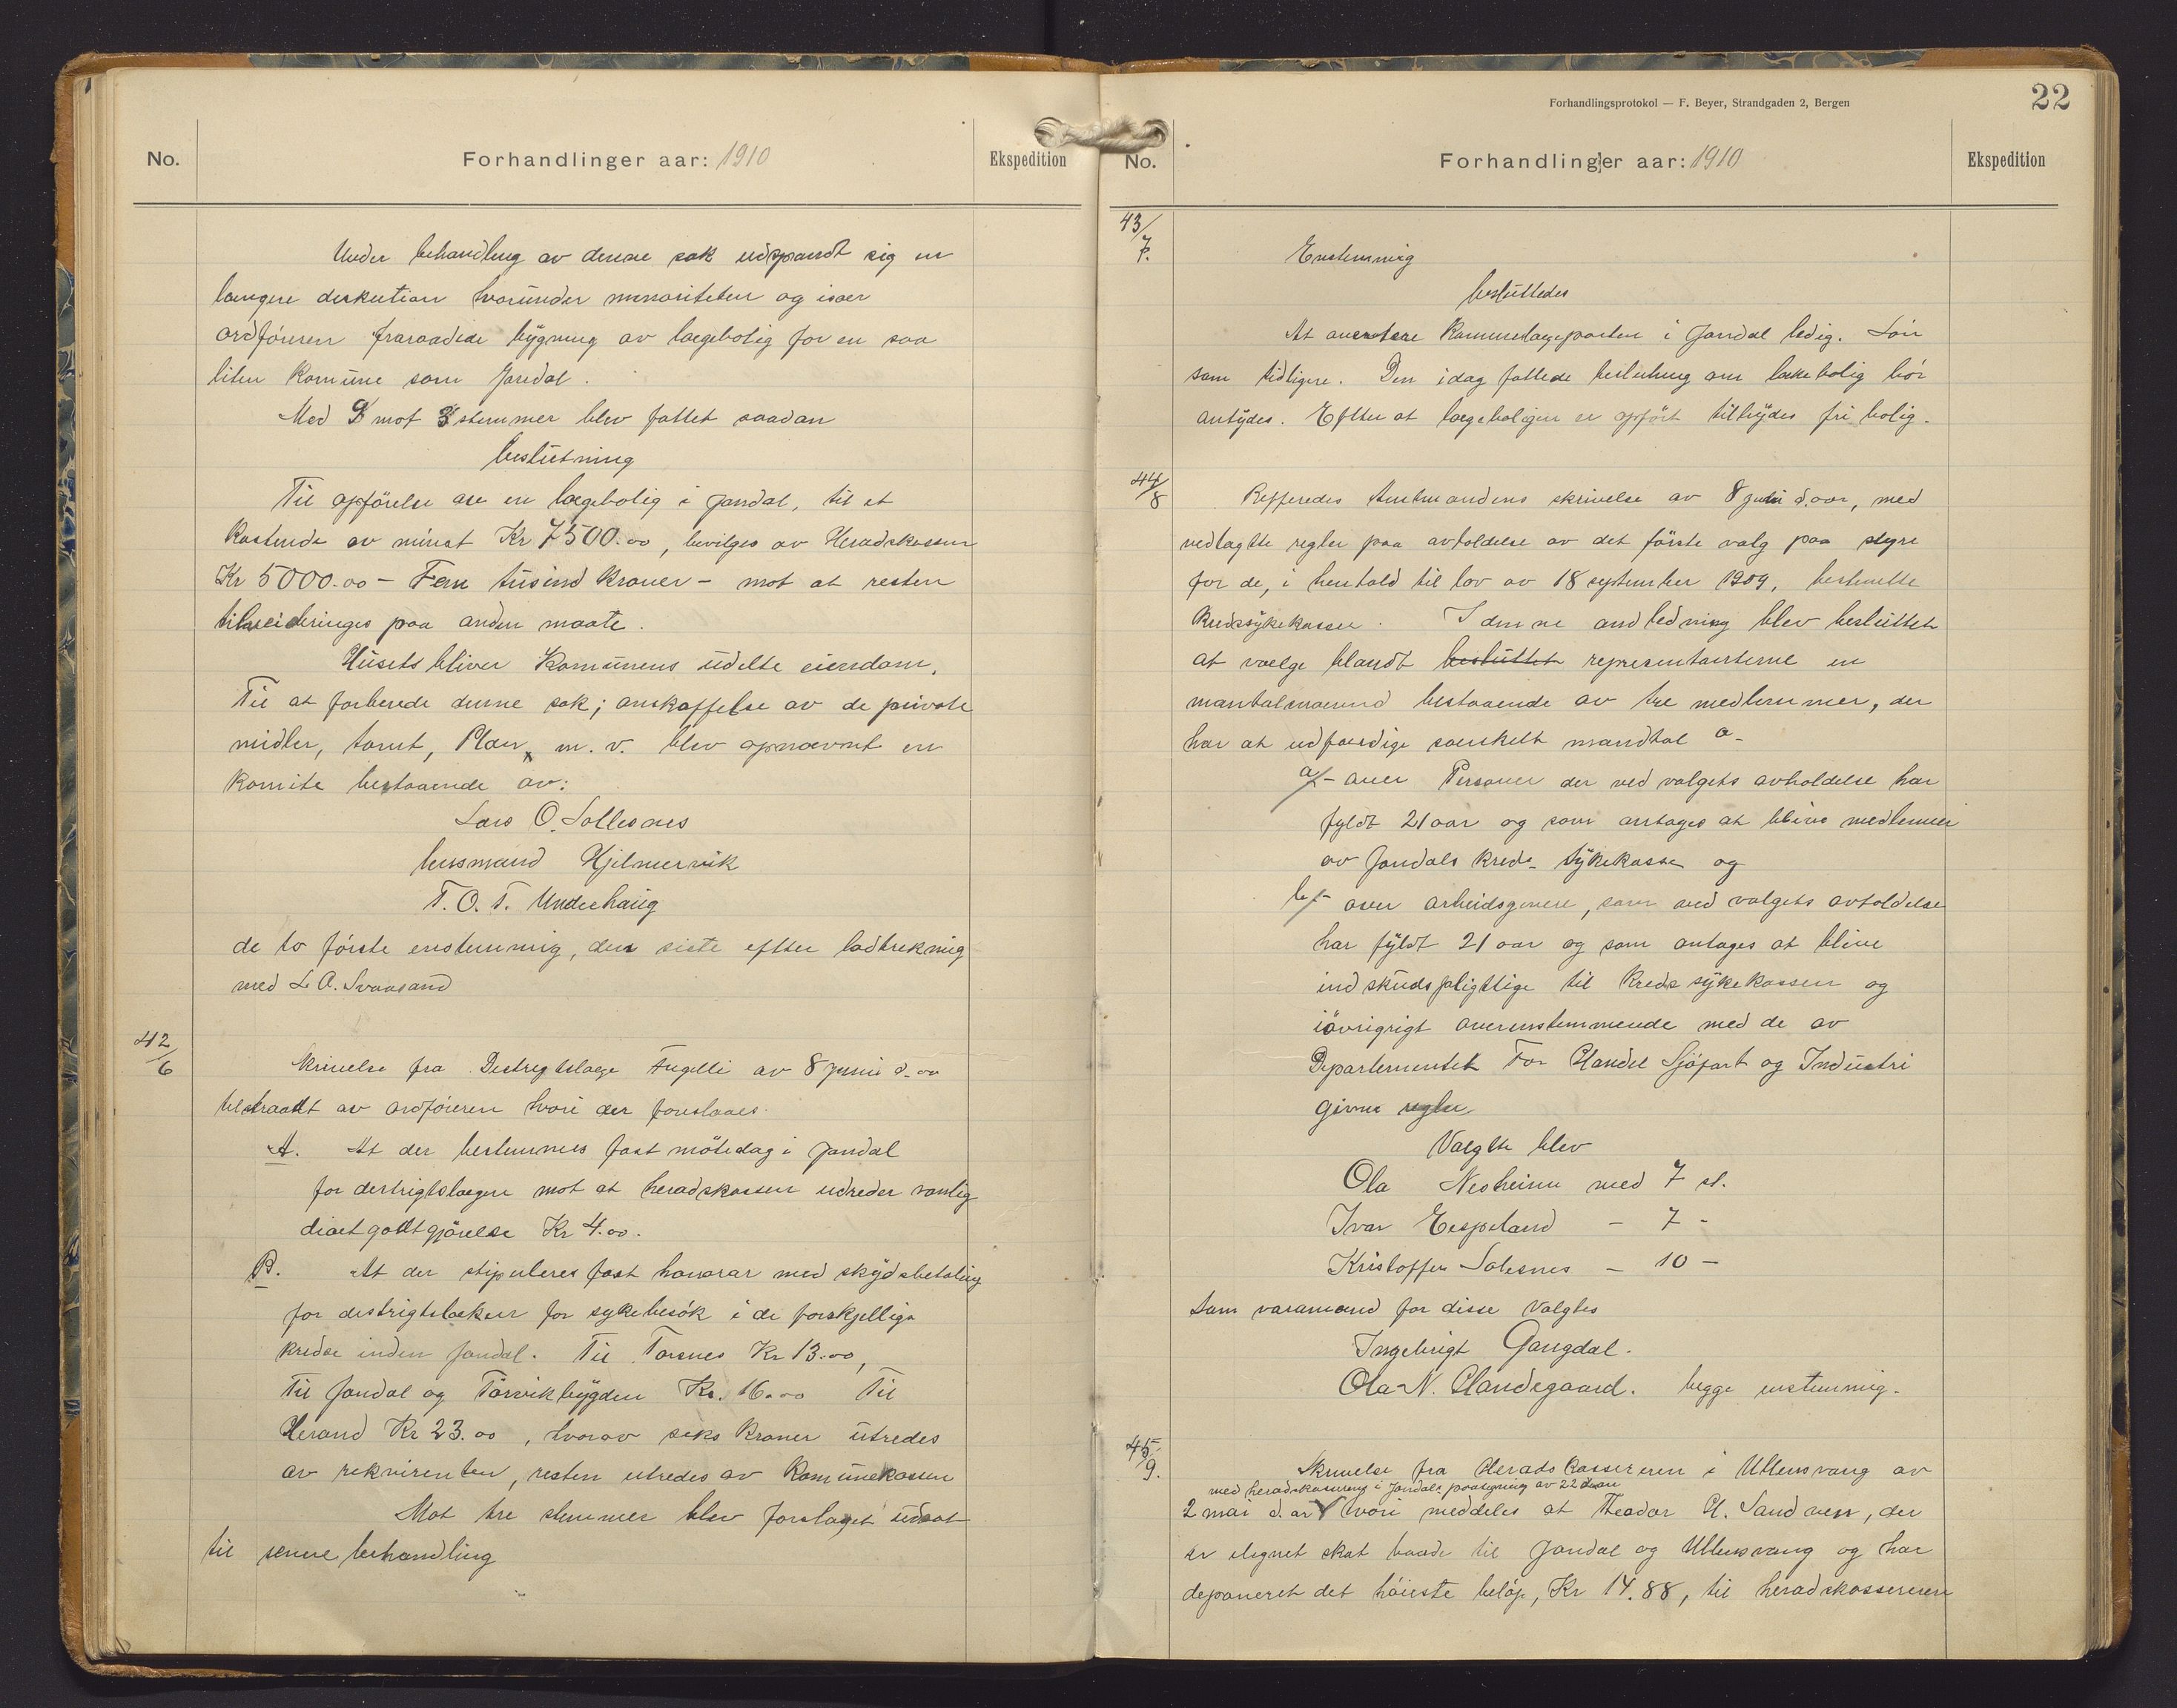 No.
Forhandlinger aar: 1910
Ekspedition
Under behandling av denne sak udspandt sig en
længere diskution hvorunder minoriteten og især
ordføreren fraraadede bygning av lægebolig for en saa
liten Komune som Jondal.
Med 9 mot 3 stemmer blev fattet saadan
beslutning
Til opførelse av en lægebolig i Jondal, til et
Kostende av minst Kr 7500.00, bevilges av Heradskassen
Kr 5000.00 - Fem tusind Kroner - mot at resten
tilveiebringes paa anden maate.
Husets bliver Komunens udelte eiendom.
Til at forberede denne sak; anskaffelse av de private
midler, tomt, Plan, m. v. blev opnævnt en
Komite bestaaende av:
Lars O. Sollesnes
lensmand Hjelmervik
T. O. T. Underhaug
de to første enstemmig, den siste efter lodtrekning
med L A. Svaasand
42/6
Skrivelse fra Destrigtslæge Fugelli av 8 juni d. aa
tilstraalt av ordføreren hvori der foreslaaes.
A. At der bestemmes fast møtedag i Jondal
for destrigtslægen mot at heradskassen udreder vanlig
diætgodtgjørelse Kr 4.00.
B. At der stipuleres fast honorar med skydsbetaling
for destrigtslækeren for sykebesøk i de forskjellige
kredse inden Jondal. Til Torsnes Kr 13.00,
Til Jondal og Torvikbygden Kr. 16.00 Til
Herand Kr 23.00, hvorav seks Kroner utredes
av rekvirenten, resten utredes av Komunekassen
Mot tre stemmer blev forslaget udsat
til senere behandling
Forhandlingsprotokol — F. Beyer, Strandgaden 2, Bergen
22
No.
Forhandlinger aar: 1910
Ekspedition
43/7.
Enstemmig
besluttedes
At avertere Kommunelægeposten i Jondal ledig. Løn
som tidligere. Den idag fattede beslutning om lækebolig bør
antydes. Efter at lægeboligen er opført tilbydes fri bolig.
44/8
Refferedes Amtmandens skrivelse av 8 juni d. aar, med
vedlagte regler paa avholdelse av det første valg paa styre
for de, i henhold til lov av 18 september 1909, bestemte
Kredssykekasser. I denne andledning blev besluttet
at vælge blandt besluttet representanterne en
mantalsnævnd bestaaende av tre medlemmer, der
har at udfærdige særskelt mandtal a-
a/- over Personer der ved valgets avholdelse har
fyldt 21 aar og som antages at blive medlemmer
av Jondals Kreds- sykekasse og
b/- over arbeidsgivere, som ved valgets avholdelse
har fyldt 21 aar og som antages at blive
indskudspligtlige til Kredssykekassen og
iøvrigrigt overensstemmende med de av
Departementet For Handel Sjøfart og Industri
givne regler.
Valgte blev
Ola Nesheim med 7 st.
Ivar Eespeland - 7 -
Kristoffer Solesnes - 10 -
Som varamand for disse Valgtes
Ingebrigt Gangdal.
Ola N. Handegaard. begge enstemmig.
45/9.
Skrivelse fra Heradskassereren i Ullensvang av
med heradskassereren i Jondals paategning av 22
2 mai d. ar hvori meddeles at Theodor H. Sandven, der
er ilignet skat baade til Jondal og Ullensvang og har
deponeret det høieste beløp, Kr 14.88, til heradskassereren